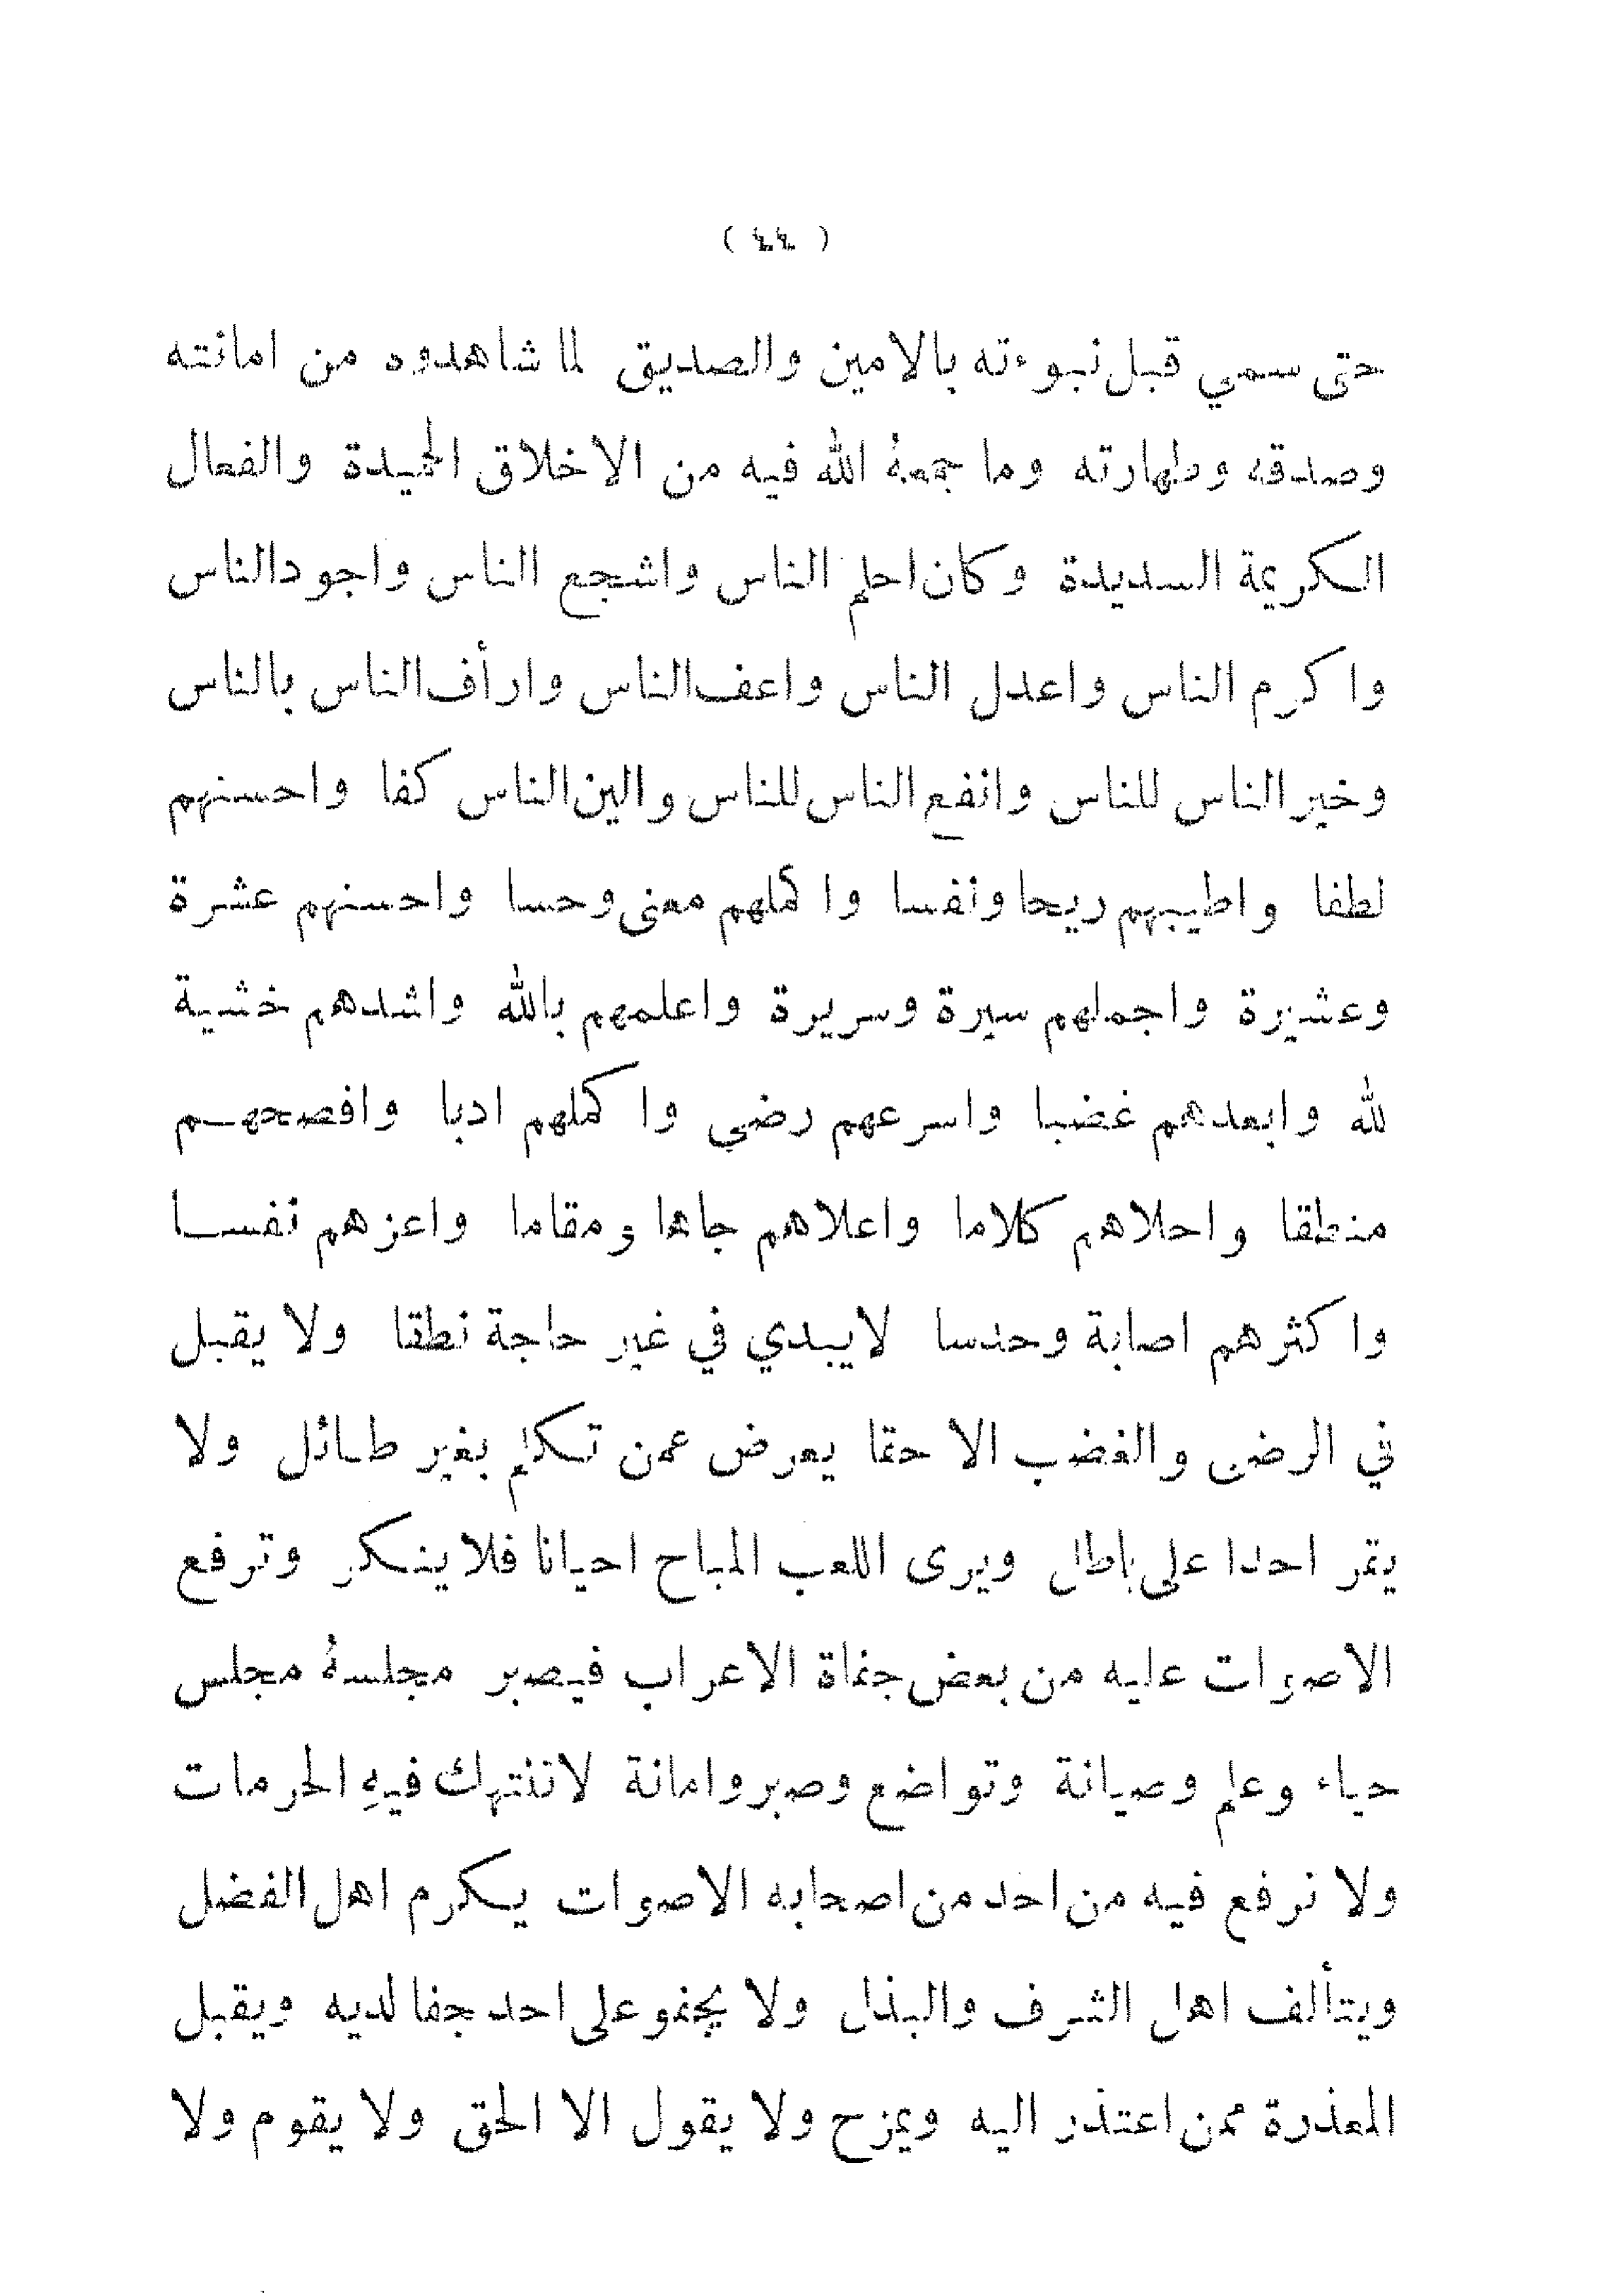 ( ٤٤ )
حتى سمي قبل نبوءته بالامين والصديق لما شاهدوه من امانته
وصدقه وطهارته وما جمعهُ الله فيه من الاخلاق الحميدة والفعال
الكريمة السديدة وكان احلم الناس واشجع الناس واجود الناس
واكرم الناس واعدل الناس واعف الناس وارأف الناس بالناس
وخير الناس للناس وانفع الناس للناس والين الناس كفا واحسنهم
لطفا واطيبهم ريحا ونفسا واكملهم معنى وحسا واحسنهم عشرة
وعشيرة واجملهم سيرة وسريرة واعلمهم بالله واشدهم خشية
لله وابعدهم غضبا واسرعهم رضى واكملهم ادبا وافصحهم
منطقا واحلاهم كلاما واعلاهم جاها ومقاما واعزهم نفسا
واكثرهم اصابة وحدسا لا يبدي في غير حاجة نطقا ولا يقبل
في الرضى والغضب الا حقا يعرض عمن تكلم بغير طائل ولا
يقر احدا على باطل ويرى اللعب المباح احيانا فلا ينكر وترفع
الاصوات عليه من بعض جفاة الاعراب فيصبر مجلسهُ مجلس
حياء وعلم وصيانة وتواضع وصبر وامانة لا تنتهك فيهِ الحرمات
ولا ترفع فيه من احد من اصحابه الاصوات يكرم اهل الفضل
ويتألف اهل الشرف والبذل ولا يجفو على احد جفا لديه ويقبل
المعذرة ممن اعتذر اليه ويمزح ولا يقول الا الحق ولا يقوم ولا